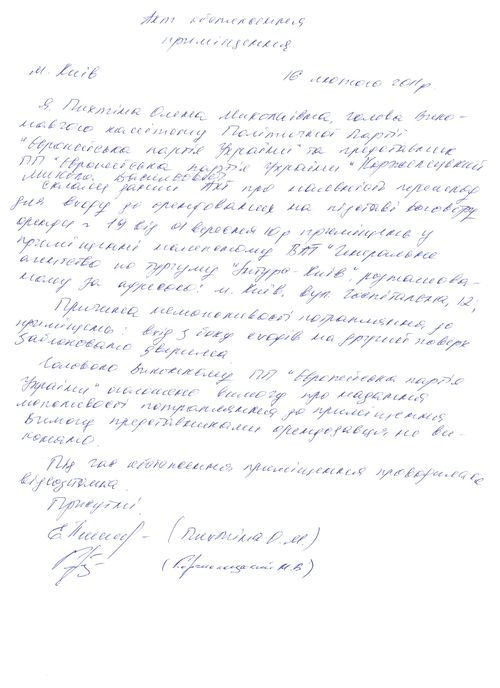 Акт обстеження
приміщення
м. Київ 16 лютого 2011р.
Я, Пиктіна Олена Миколаївна, голова Вико-
навчого комітету Політичної Партії
"Європейська партія України" та представник
ПП "Європейська партія України"
Микола Васильович
склали даний Акт про наявність перешкод
для входу до орендованих на підставі договору
оренди № 19 від 01 вересня 10р приміщень у
приміщенні належному ВАТ "Генеральне
агентство по туризму "Інтура-Київ" розташова-
ному за адресою: м. Київ, вул. Госпітальна, 12;
Причина неможливості потрапляння до
приміщень: вхід з боку сходів на другий поверх
заблоковано дверима.
Головою Виконкому ПП "Європейська партія
України" оголошено вимогу про надання
можливості потрапляння до приміщення
Вимогу представниками орендодавця не ви-
конано.
Під час обстеження приміщення проводилася
відеозйомка.
Присутні:
(Пиктіна О.М.)